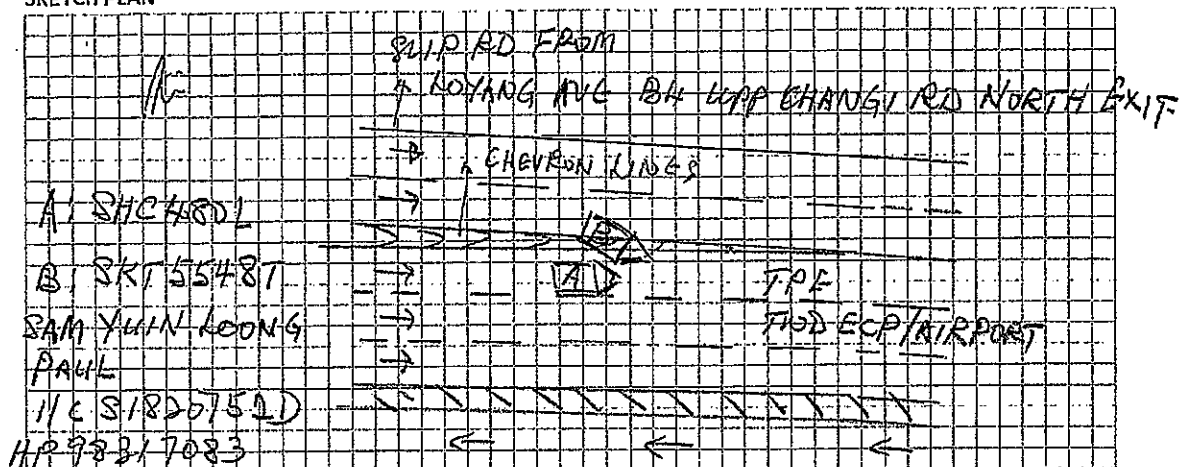 SKETCH PLAN
SLIP RD FROM
LOYANG AVE B4 UPP CHANGI RD NORTH EXIT
CHEVRON LINES
A: SHC480L
B: SKT5548T
SAM YUIN LOONG
PAUL
I/C S1820752D
HP 98317083
B
A
TPE
TWD ECP/AIRPORT